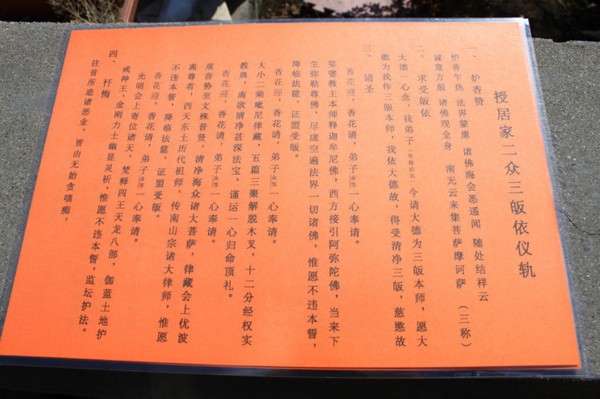 授居家二众三皈依仪轨
一、炉香赞
炉香乍热 法界蒙熏 诸佛海会悉遥闻 随处结祥云
诚意方殷 诸佛现全身 南无云来集菩萨摩诃萨 (三称)
二、求受皈依
大德一心念,我弟子 今请大德为三皈本师,愿大
德为我作三皈本师,我依大德故,得受清净三皈,慈愍故
三、请圣
香花迎,香花请,弟子 一心奉请。
娑婆教主本师释迦牟尼佛,西方接引阿弥陀佛,当来下
生弥勒尊佛,尽虚空遍法界一切诸佛,惟愿不违本誓,
降临法筵,证盟受皈。
香花迎,香花请,弟子 一心奉请。
大小二乘毗尼律藏,五篇三聚解脱木叉,十二分经权实
教典,离欲清净甚深法宝,谨运一心归命顶礼。
香花迎,香花请,弟子 一心奉请。
莲台势至文殊普贤,清净海众诸大菩萨,律藏会上优波
离尊者,西天东土历代祖师,传南山宗诸大律师,惟愿
不违本誓,降临法筵,证盟受皈。
香花迎,香花请,弟子 一心奉请。
光明会上寄位诸天,梵释四王天龙八部,伽蓝土地护
戒神王,金刚力士幽显灵祈,惟愿不违本誓,监坛护法。
四、忏悔
往昔所造诸恶业,皆由无始贪嗔痴,